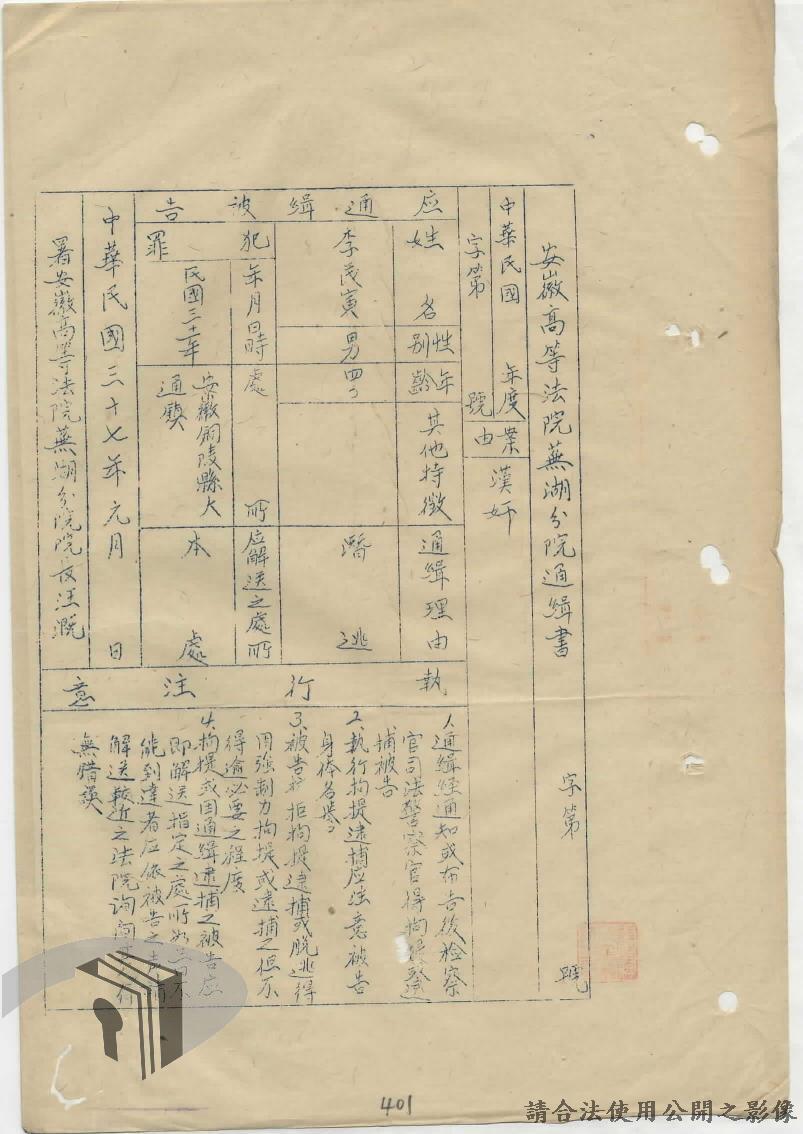 安徽高等法院蕪湖分院通緝書　字第　號
中華民國　年度
字第　號
案由
漢奸
应通緝被告
姓名
性別
年齡
其他特徵
通緝理由
李茂寅
男
四〇
潛逃
犯罪
年月日時
處所
应解送之處所
民國三十一年
安徽銅陵縣大
通鎮
本處
中華民國三十七年元月　日
署安徽高等法院蕪湖分院院長汪
執行注意
1、通緝經通知或布告後检察
官司法警察官得拘提逮
捕被告
2、執行拘提逮捕应注意被告
身体名譽
3、被告抗拒拘提逮捕或脫逃得
用强制力拘提或逮捕之但不
得逾必要之程度
4、拘提或因通緝逮捕之被告应
即解送指定之處所如三日不
能到達者应依被告之声請
解送較近之法院詢問其人有
無錯誤
401
請合法使用公開之影像